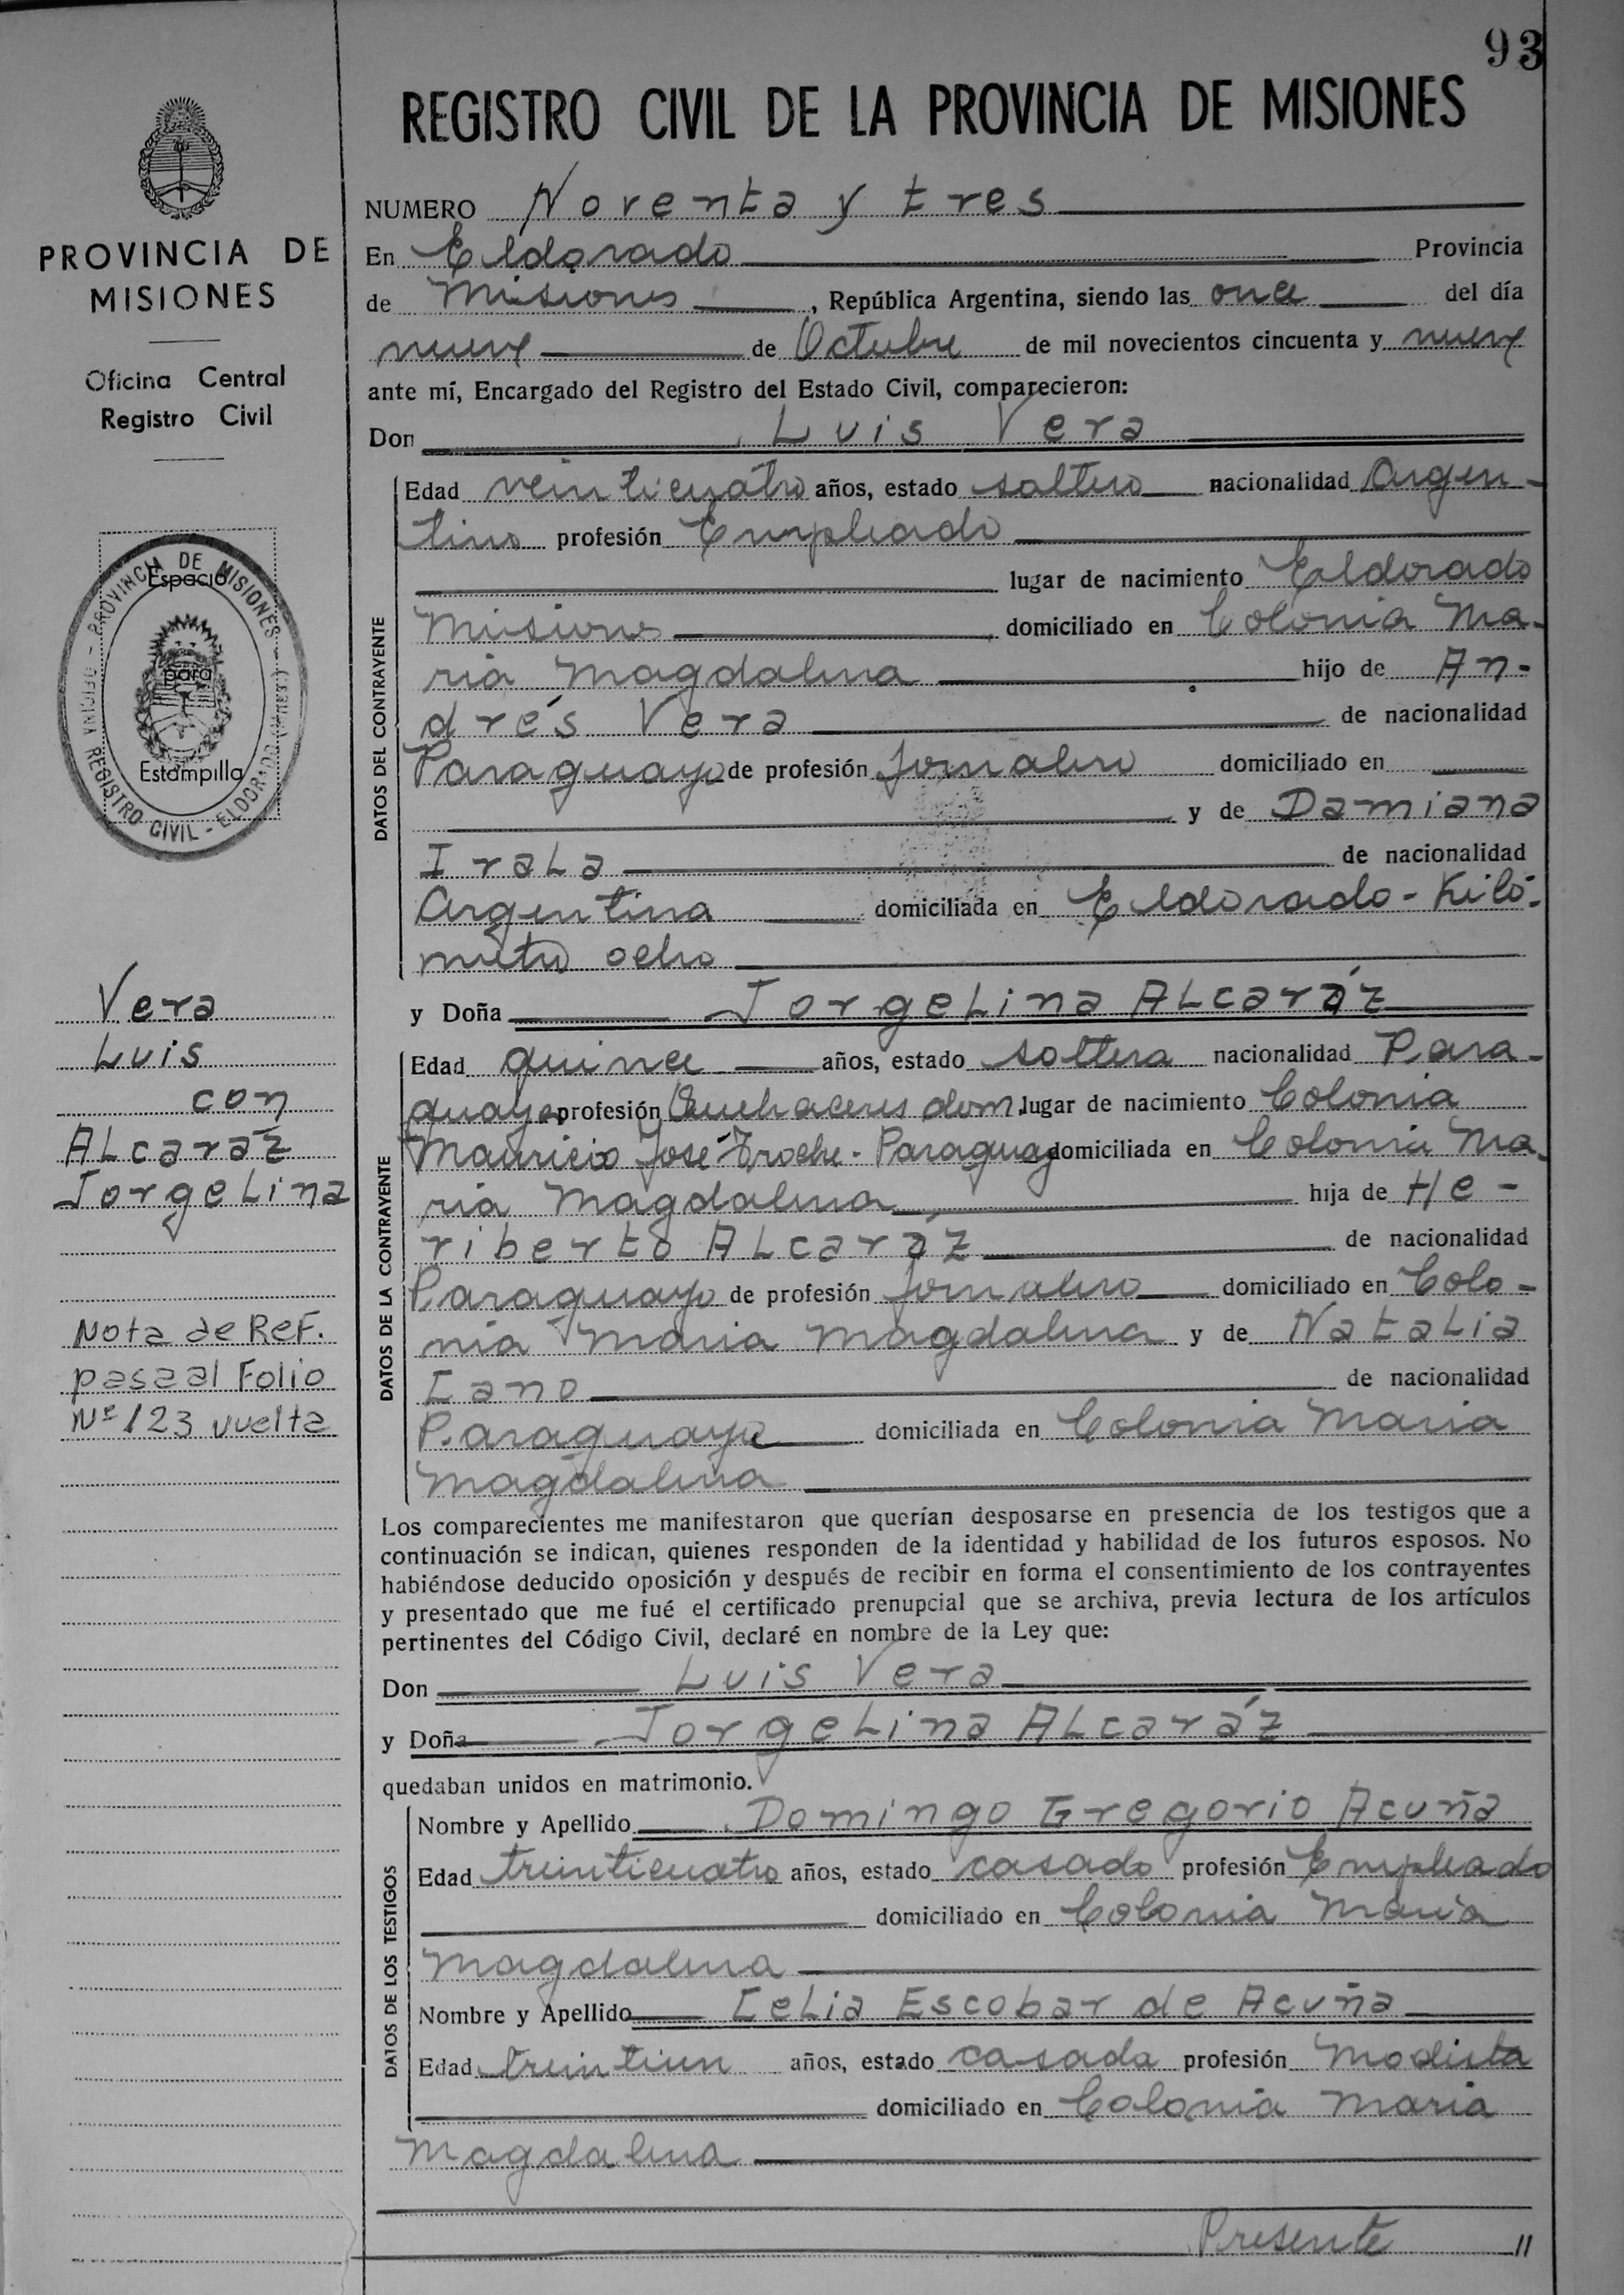 93
REGISTRO CIVIL DE LA PROVINCIA DE MISIONES
PROVINCIA DE
MISIONES
Oficina Central
Registro Civil
PROVINCIA DE MISIONES
REGISTRO CIVIL - ELDORADO
Espacio
para
Estampilla
Vera
Luis
con
Alcaráz
Jorgelina
Nota de Ref.
pasa al Folio
Nº 123 vuelta
NUMERO Noventa y tres
En Eldorado Provincia
de Misiones, República Argentina, siendo las once del día
nueve de Octubre de mil novecientos cincuenta y nueve
ante mí, Encargado del Registro del Estado Civil, comparecieron:
Don Luis Vera
DATOS DEL CONTRAYENTE
Edad veinticuatro años, estado soltero nacionalidad Argen-
tino profesión Empleado
lugar de nacimiento Eldorado
Misiones, domiciliado en Colonia Ma-
ria Magdalena hijo de An-
drés Vera de nacionalidad
Paraguayo de profesión Jornalero domiciliado en
y de Damiana
Irala de nacionalidad
Argentina domiciliada en Eldorado - Kiló-
metro ocho
y Doña Jorgelina Alcaráz
DATOS DE LA CONTRAYENTE
Edad quince años, estado soltera nacionalidad Para-
guaya profesión Quehaceres dom. lugar de nacimiento Colonia
Mauricio José Troche - Paraguay domiciliada en Colonia Ma-
ria Magdalena hija de He-
riberto Alcaráz de nacionalidad
Paraguayo de profesión Jornalero domiciliado en Colo-
nia Maria Magdalena y de Natalia
Cano de nacionalidad
Paraguaya domiciliada en Colonia Maria
Magdalena
Los comparecientes me manifestaron que querían desposarse en presencia de los testigos que a
continuación se indican, quienes responden de la identidad y habilidad de los futuros esposos. No
habiéndose deducido oposición y después de recibir en forma el consentimiento de los contrayentes
y presentado que me fué el certificado prenupcial que se archiva, previa lectura de los artículos
pertinentes del Código Civil, declaré en nombre de la Ley que:
Don Luis Vera
y Doña Jorgelina Alcaráz
quedaban unidos en matrimonio.
DATOS DE LOS TESTIGOS
Nombre y Apellido Domingo Gregorio Acuña
Edad treinticuatro años, estado casado profesión Empleado
domiciliado en Colonia Maria
Magdalena
Nombre y Apellido Celia Escobar de Acuña
Edad treintiun años, estado casada profesión Modista
domiciliado en Colonia Maria
Magdalena
Presente //